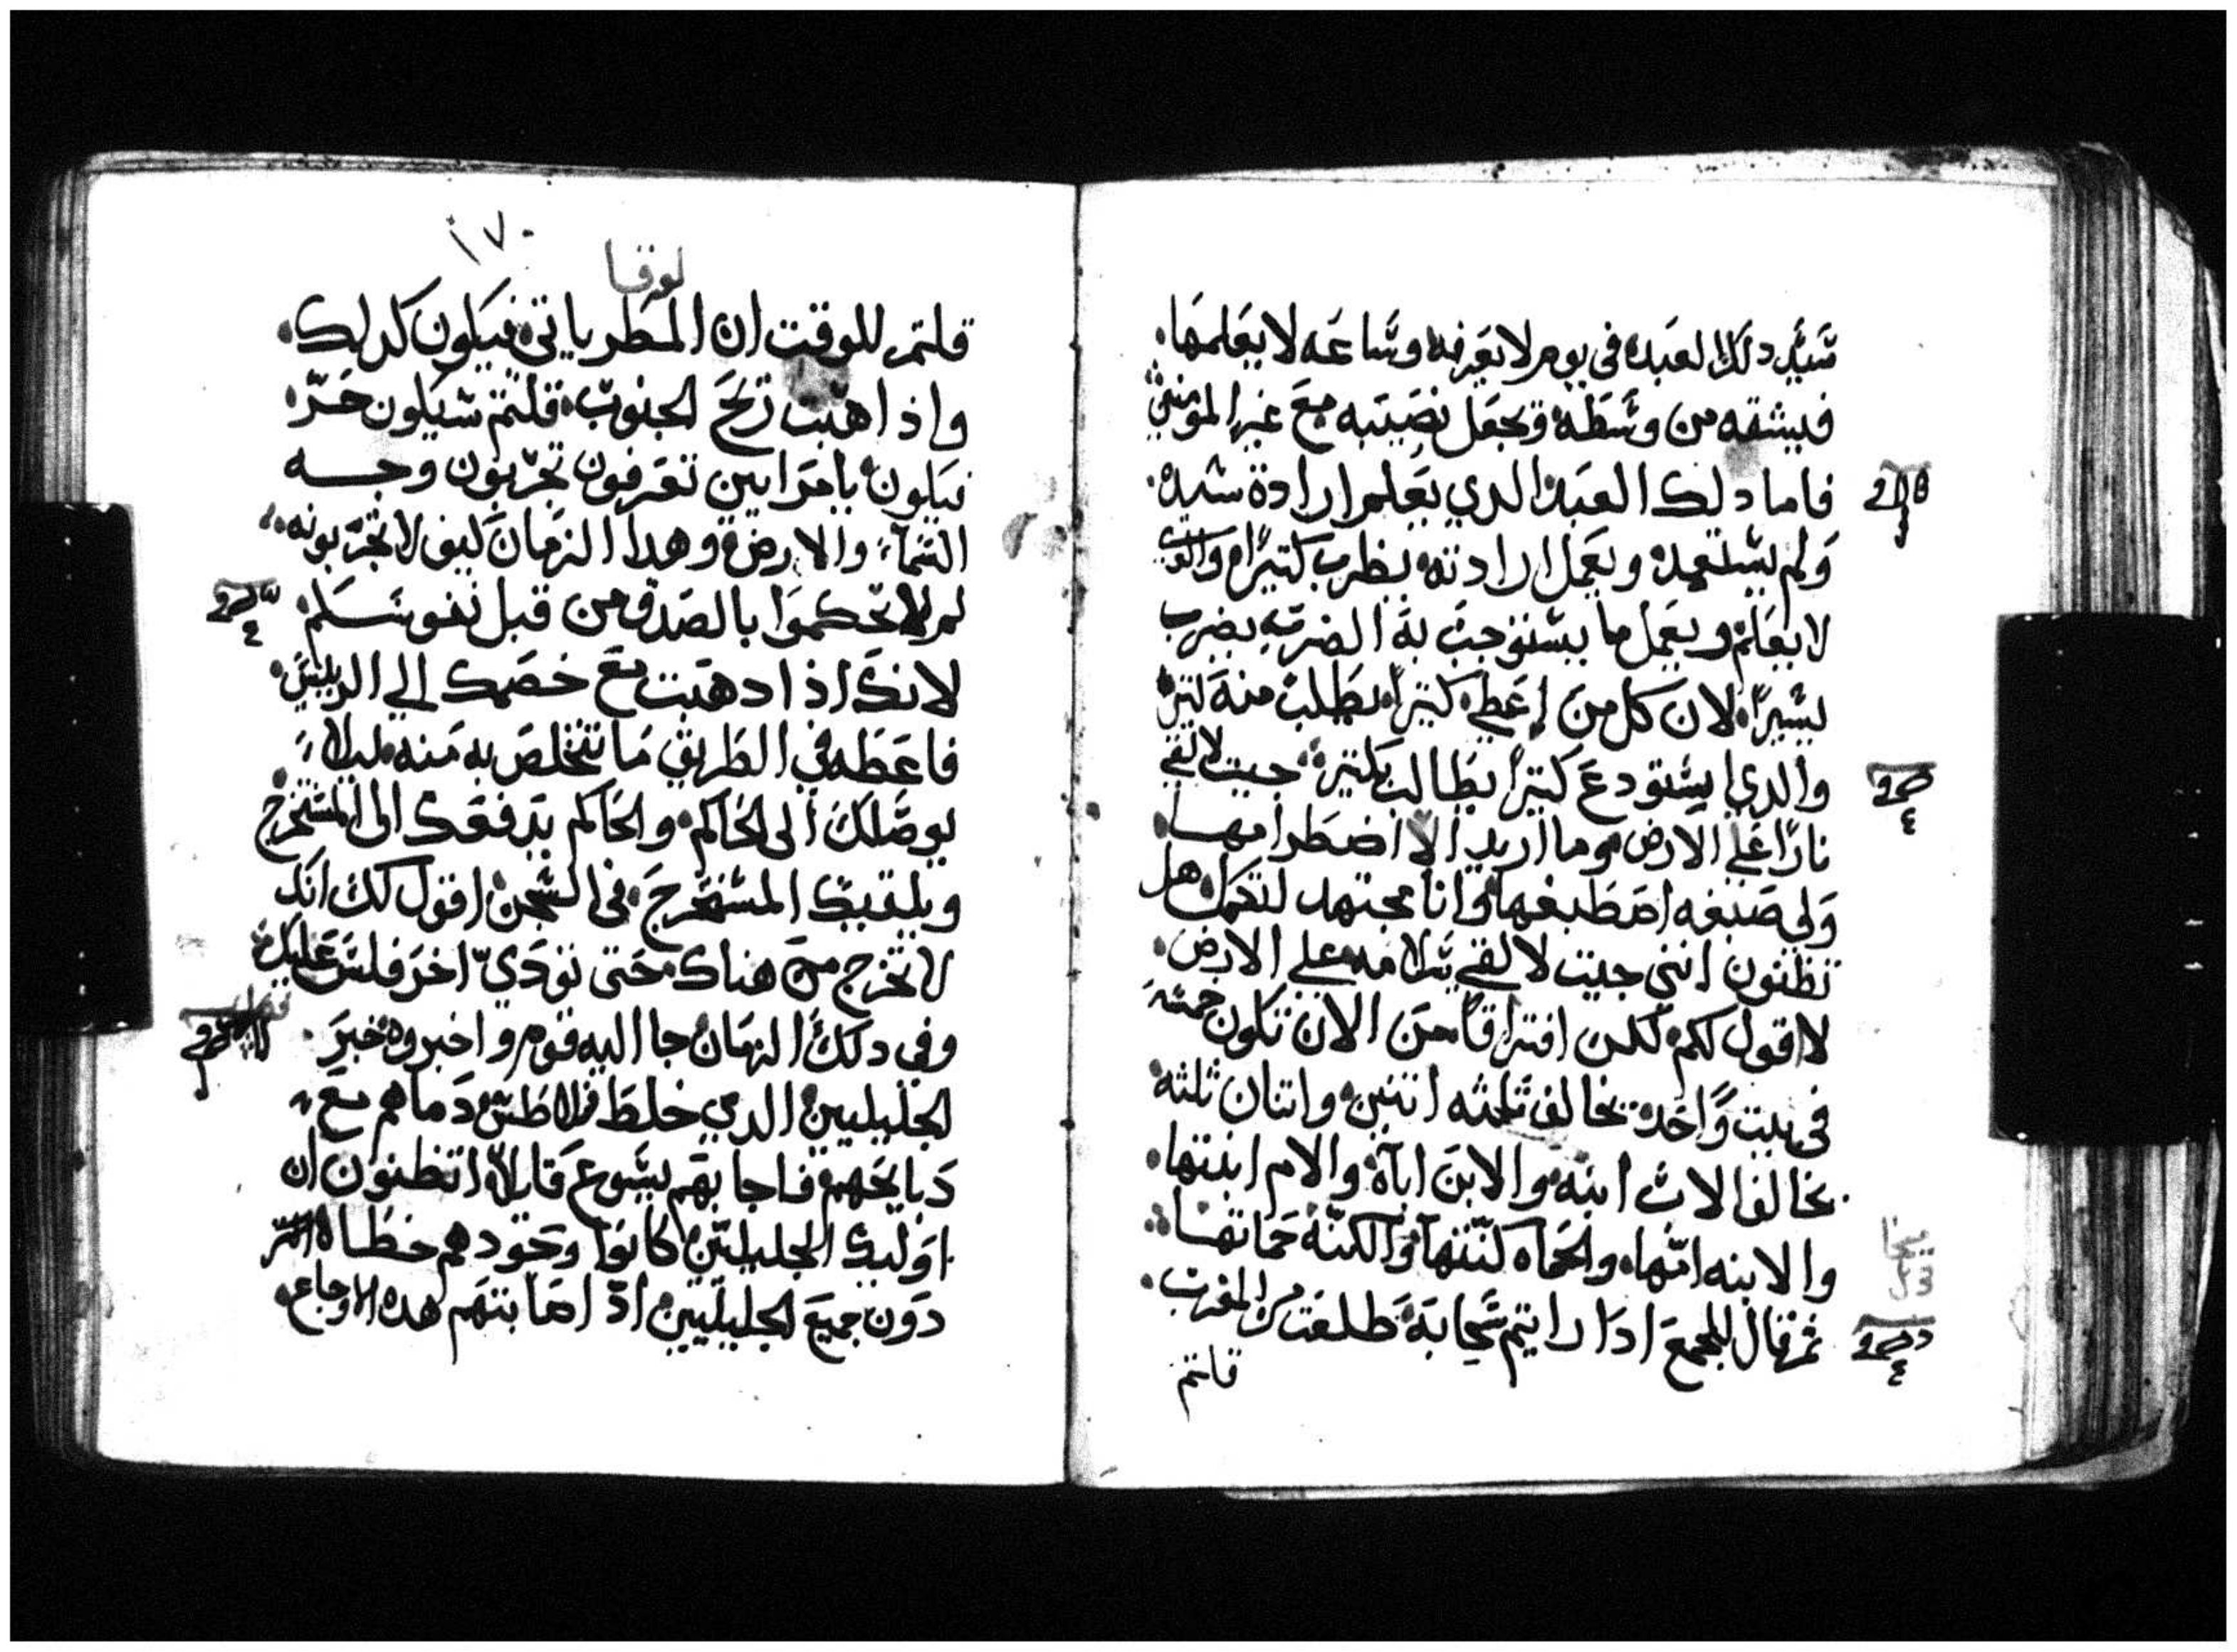 سَيِّد دلك العبد في يوم لا يعرفه وساعه لا يعلمها.
فيشقه من وسطه ويجعل نصيبه مع غير المومنين
فاما دلك العبد الدي يعلم ارادة سيده.
ولم يستعد ويعمل ارادته يظرب كتيرًا والدي
لا يعلم ويعمل ما يستوجب به الضرب يضرب
يسيرًا لان كل من اعطى كتيرًا يطلب منه كتيرًا
والدي استودع كتيرًا يطالب بكتير جيت لالقي
نارًا على الارض وما اريد الا اضطرامها
ولي صبغه اصطبغها وانا مجتهد لتكمل هل
تظنون انني جيت لالقي سلامه على الارض.
لا اقول لكم لكن افتراقًا من الان تكون خمسه
في بيت واحد يخالف تلته اتنين واتنان تلته
يخالف الاب ابنه والابن اباه والام ابنتها.
والابنه امها والحماه كنتها والكنه حماتها
ثم قال للجمع ادا رايتم سحابه طلعت من المغرب.
قلتم
١٧٠
لوقا
قلتم للوقت ان المطر ياتي فيكون كدلك.
واذا هبت ريح الجنوب قلتم سيكون حرّ
فيكون يا مرايين تعرفون تجربون وجه
السماء والارض وهدا الزمان كيف لا تجربونه
لم لا تحكموا بالصدق من قبل نفوسكم
لانك اذا دهبت مع خصمك الي الرييس.
فاعطه في الطريق ما تتخلص به منه ليلا
يوصلك الى الحاكم والحاكم يدفعك الى المستخرج
ويلقيك المستخرج في السجن اقول لك انك
لا تخرج من هناك حتى تودي اخر فلس عليك
وفي دلك الزمان جا اليه قوم واخبروه خبر
الجليليين الدي خلط فلاطس دماهم مع
دبايحهم فاجابهم يسوع قايلا اتظنون ان
اوليك الجليليين كانوا وحودهم خطاه اكتر
دون جميع الجليليين اذ اصابتهم هده الاوجاع.